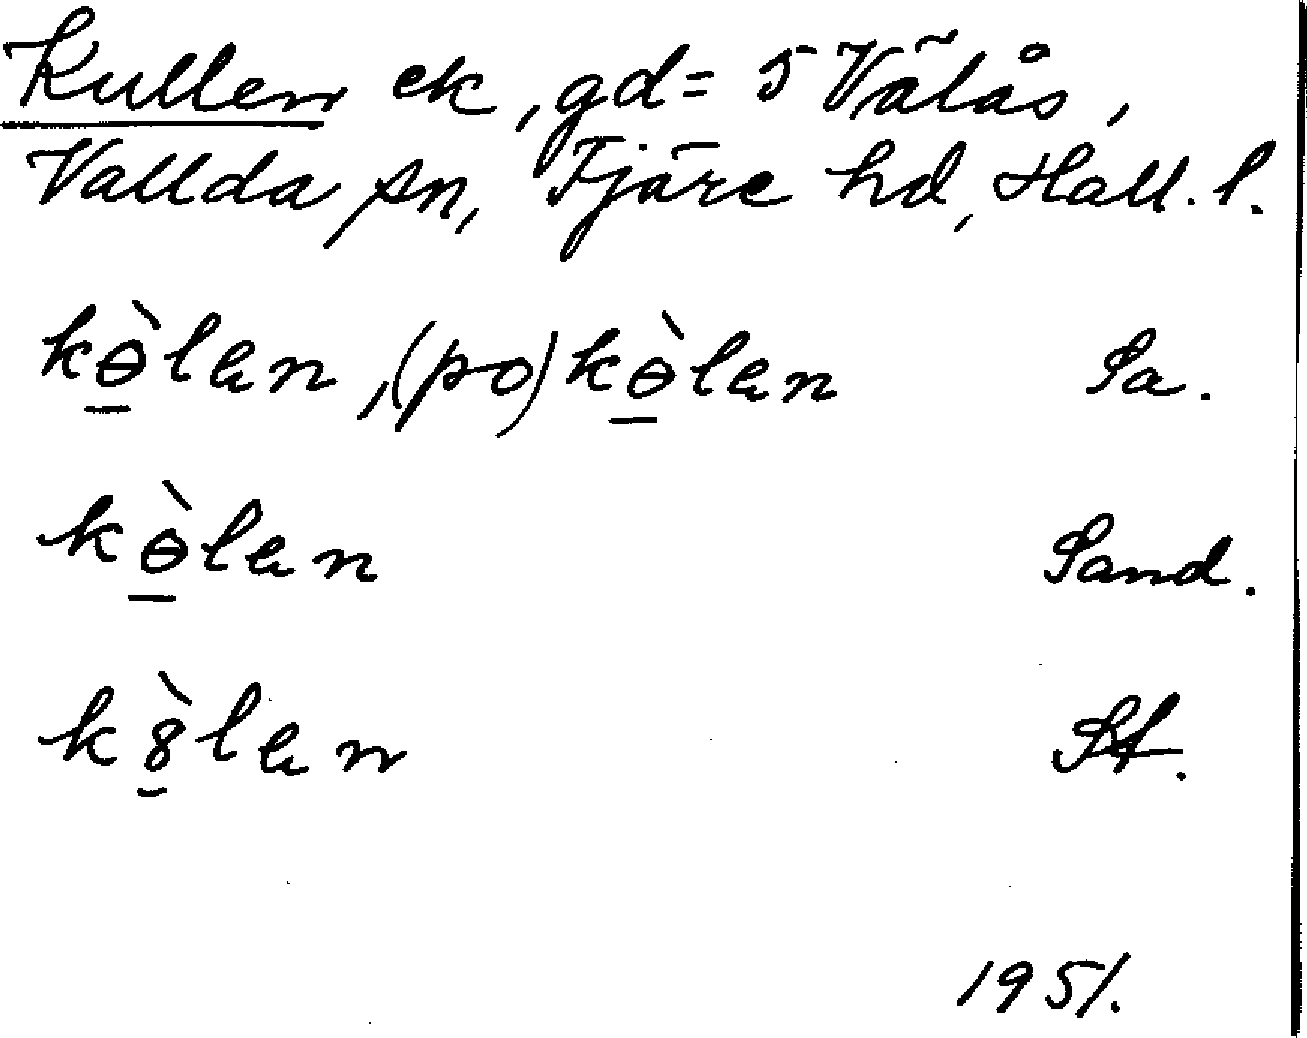 Kullen ek, gd = 5 Välås,
Vallda sn, Fjäre hd, Hall. l.
kɵ̲̀lan, (po) kɵ̲̀lan Sa.
kɵ̲̀lan Sand.
k8̲̀lan St.
1951.